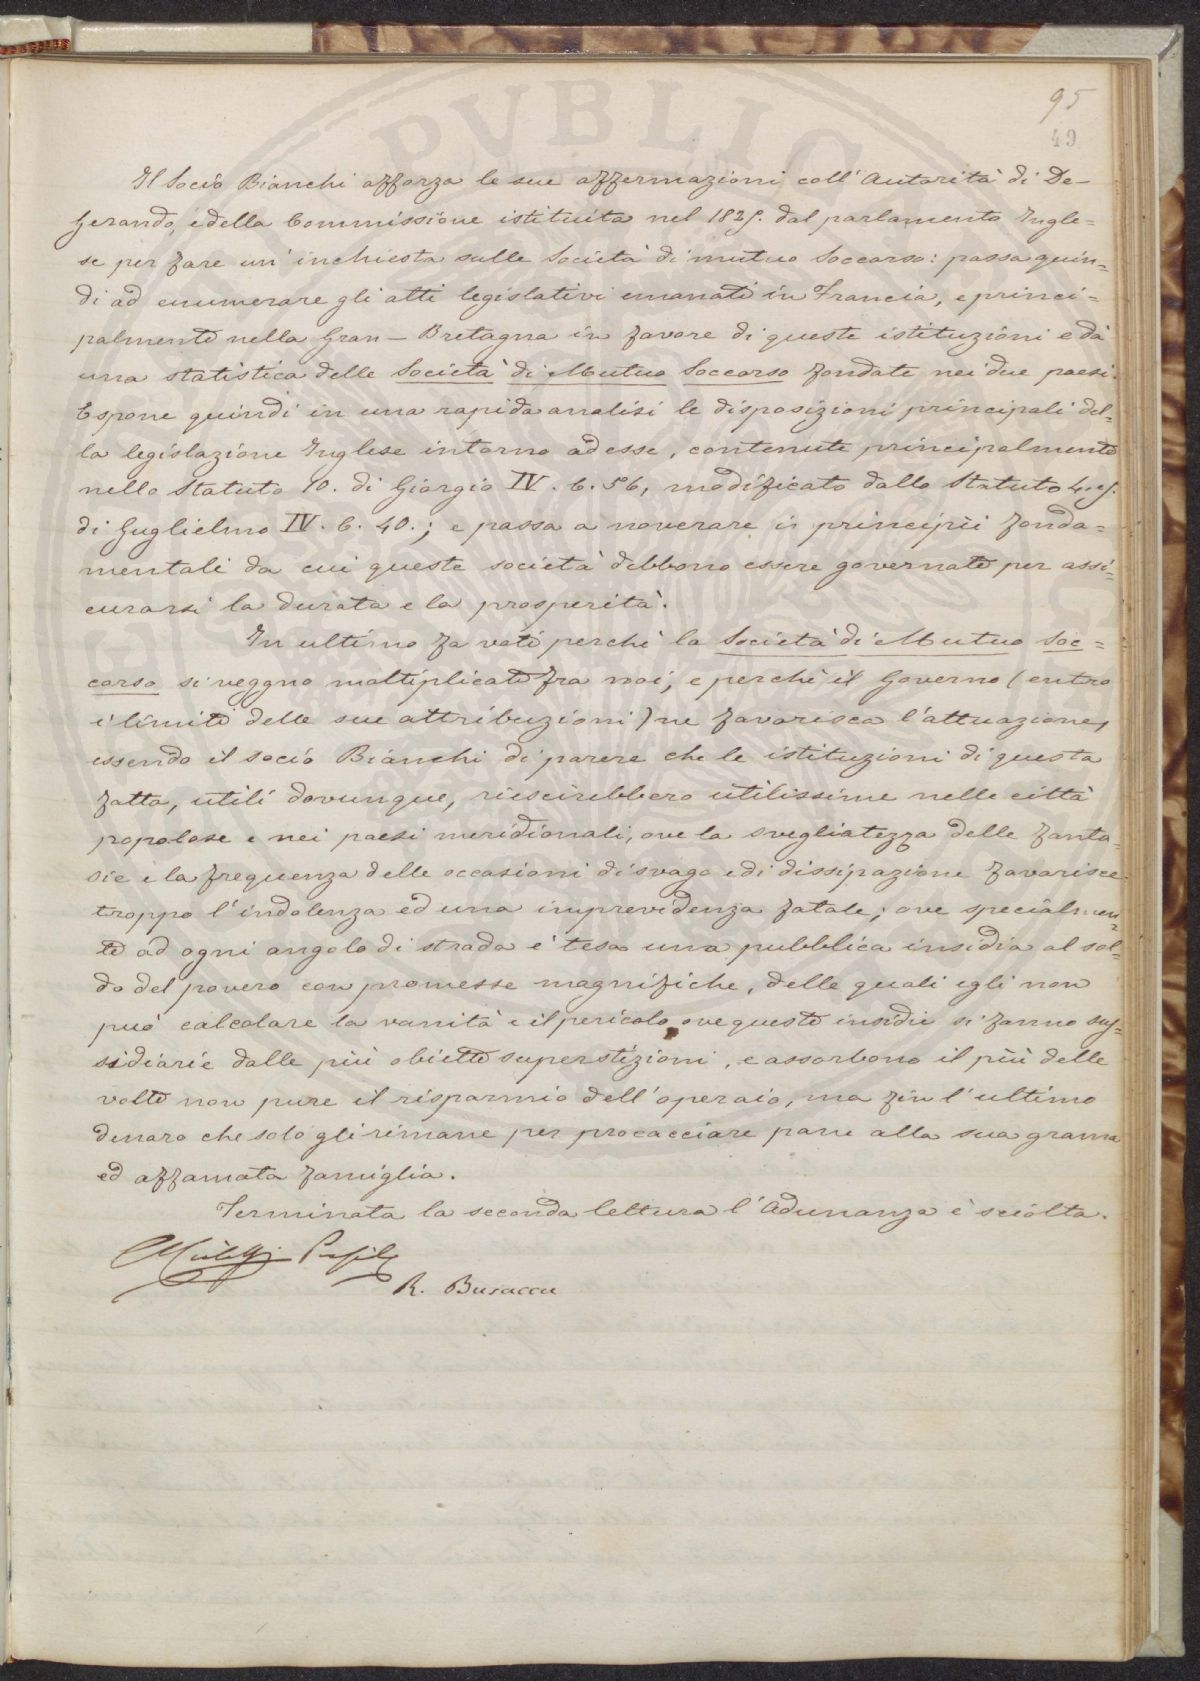 PVBLIC
95
49
Il Socio Bianchi afforza le sue affermazioni coll'Autorità di De-
Gerando, e della Commissione istituita nel 1825. dal parlamento Ingle=
se per fare un'inchiesta sulle Società di mutuo Soccorso: passa quin=
di ad enumerare gli atti legislativi emanati in Francia, e princi=
palmente nella Gran-Bretagna in favore di queste istituzioni e dà
una statistica delle Società di Mutuo Soccorso fondate nei due paesi.
Espone quindi in una rapida analisi le disposizioni principali del=
la legislazione Inglese intorno ad esse, contenute principalmente
nello Statuto 10. di Giorgio IV. C. 56, modificato dallo Statuto 4. e 5.
di Guglielmo IV. C. 40.; e passa a noverare i principii fonda=
mentali da cui queste società debbono essere governate per assi=
curarsi la durata e la prosperità.
In ultimo fa voti perchè la Società di Mutuo Soc=
corso si veggno moltiplicate fra noi, e perchè il Governo (entro
i limiti delle sue attribuzioni) ne favorisca l'attuazione,
essendo il socio Bianchi di parere che le istituzioni di questa
fatta, utili dovunque, riescirebbero utilissime nelle città
popolose e nei paesi meridionali, ove la svegliatezza delle fanta=
sie e la frequenza delle occasioni di svago e di dissipazione favorisce
troppo l'indolenza ed una imprevidenza fatale; ove specialmen=
te ad ogni angolo di strada è tesa una pubblica insidia al sol=
do del povero con promesse magnifiche, delle quali egli non
può calcolare la vanità e il pericolo, ove queste insidie si fanno sus=
sidiarie dalle più abiette superstizioni, e assorbono il più delle
volte non pure il risparmio dell'operaio, ma fin l'ultimo
denaro che solo gli rimane per procacciare pane alla sua grama
ed affamata famiglia.
Terminata la seconda lettura l'Adunanza è sciolta.
R. Busacca